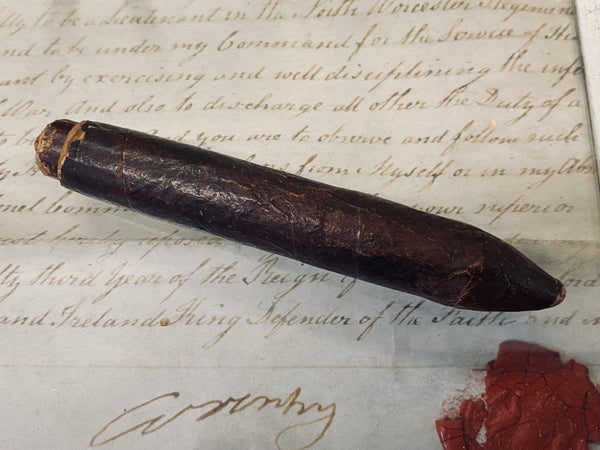 to be Lieutenant in the North Worcester Regiment
and to be under my Command for the Service of His
by exercising and well disciplining the
War And also to discharge all other the Duty of a
to be And you are to observe and follow such
from Myself or in my
your superior
hereby
third Year of the Reign of
and Ireland King Defender of the Faith and
Coventry